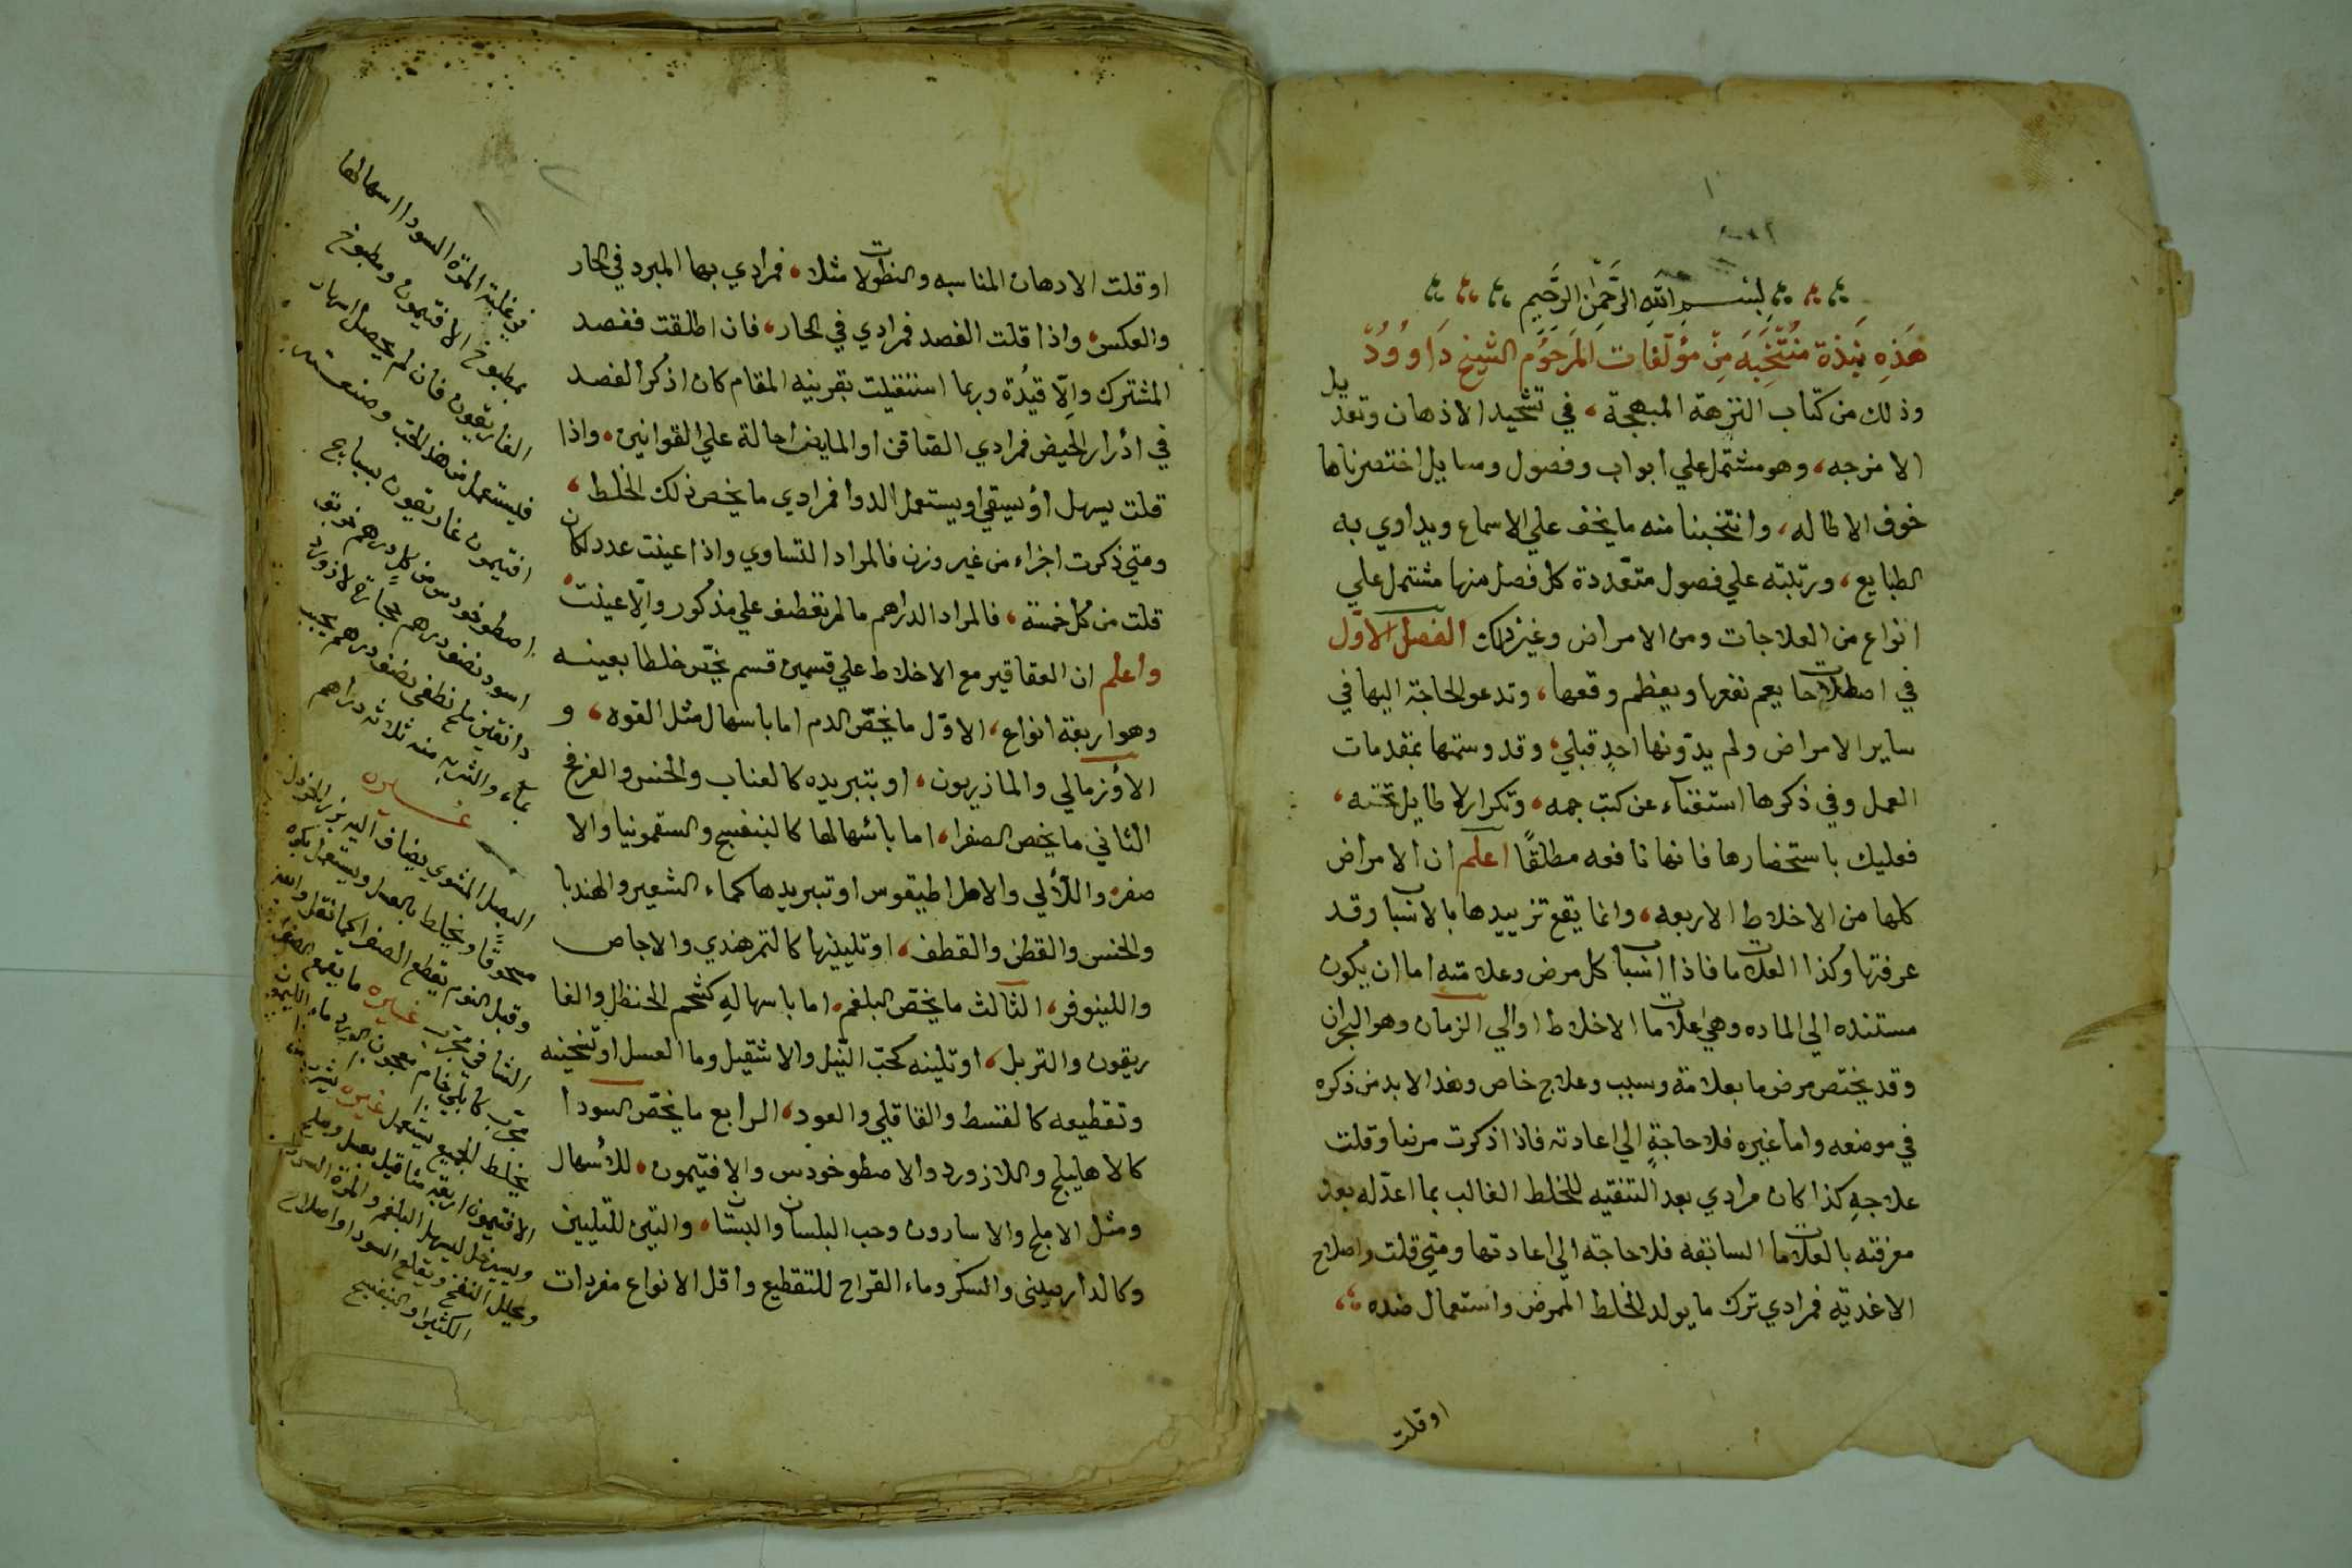 بسم الله الرحمن الرحيم
هذه نبذة منتخبه من مؤلفات المرحوم الشيخ داوود
وذلك من كتاب النزهة المبهجة، في تشحيد الاذهان وتعديل
الامزجه، وهو مشتمل علي ابواب وفصول ومسايل اختصرناها
خوف الاطاله، وانتخبنا منه ما يخف علي الاسماع ويداوي به
الطبايع، ورتبته علي فصول متعددة كل فصل منها مشتمل علي
انواع من العلاجات ومن الامراض وغير ذلك الفصل الاول
في اصطلاحات يعم نفعها ويعظم وقعها، وتدعو الحاجة اليها في
ساير الامراض ولم يدونها احد قبلي، وقد وسمتها بمقدمات
العمل وفي ذكرها استغناء عن كتب جمه، وتكرار لا طايل تحته،
فعليك باستحضارها فانها نافعه مطلقًا اعلم ان الامراض
كلها من الاخلاط الاربعه، وانما يقع تزييدها بالاسباب وقد
عرفتها وكذا العلامات فاذا اسباب كل مرض وعلامته اما ان يكون
مستنده الي الماده وهي علامات الاخلاط او الي الزمان وهو البحران
وقد يختص مرض ما بعلامة وسبب وعلاج خاص وهذا لا بد من ذكره
في موضعه واما غيره فلا حاجة الي اعادته فاذا ذكرت مرضا وقلت
علاجه كذا كان مرادي بعد التنقيه للخلط الغالب بما اعدّ له بعد
معرفته بالعلامات السابقه فلا حاجة الي اعادتها ومتي قلت واصلاح
الاغدية فمرادي ترك ما يولد الخلط الممرض واستعمال ضده
اوقلت
او قلت الادهان المناسبه والنطولات مثلا، فمرادي بها المبرد في الحار
والعكس، واذا قلت الفصد فمرادي في الحار، فان اطلقت ففصد
المشترك والّا قيدُة وربما استغنيت بقرينه المقام كان اذكر الفصد
في ادرار الحيض فمرادي الصافن او المابض احالة علي القوانين، واذا
قلت يسهل او يسقي او يستعمل الدوا فمرادي ما يخص ذلك الخلط،
ومتي ذكرت اجزاء من غير وزن فالمراد التساوي واذا عينت عدد لكان
قلت من كل خمسة، فالمراد الدراهم ما لم تعطف علي مذكور والّا عينت
واعلم ان العقاقير مع الاخلاط علي قسمين قسم يخص خلطا بعينه
وهو اربعة انواع، الاول ما يخص الدم اما باسهال مثل القوه، و
الأوزمالي والمازريون، او بتبريده كالعناب والخس والفرفخ
الثاني ما يخص الصفرا، اما باسهالها كالبنفسج والسقمونيا والا
صفر واللآلي والاطراطيقوس او تبريدها كماء الشعير والهندبا
والخس والقطن والقطف، او تليينها كالتمر هندي والاجاص
واللينوفر، الثالث ما يخص البلغم، اما باسهاله كشحم الحنظل والغا
ريقون والتربل، او تلينه كحب النيل والاشقيل وما العسل او تسخينه
وتقطيعه كالقسط والقاقلي والعود، الرابع ما يخص السودا
كالاهليلج واللازورد والاصطوخودس والافتيمون، للأسهال
ومثل الاملج والاسارون وحب البلسان والبستان، والتين للتليين
وكالدارصيني والسكر وماء القراح للتقطيع واقل الانواع مفردات
في غلبة المرة السودا اسهالها
بمطبوخ الافتيمون ومطبوخ
الغاريقون فان لم يحصل اسهال
فليستعمل من هذا الحب وصنعته
افتيمون غاريقون بسبايج
اصطوخودس من كل درهم خربق
اسود نصف درهم حجارة لازورد
دانقين ملح نطفي نصف درهم يحبب
بماء والشربه منه ثلاثة دراهم
غيره
البصل المشوي يضاف اليه بزر الخردل
مسحوقا ويخلط بالعسل ويستعمل بكره
وقبل النوم يقطع الصفرا
غيره
يخلط الجميع يستعمل غيره
الافتيمون اربعة مثاقيل بعسل وملح
ويسير خل ليسهل البلغم والمرة السودا
ويحلل النفخ ويقلع السودا واصلاح
الكثيرا والبنفسج